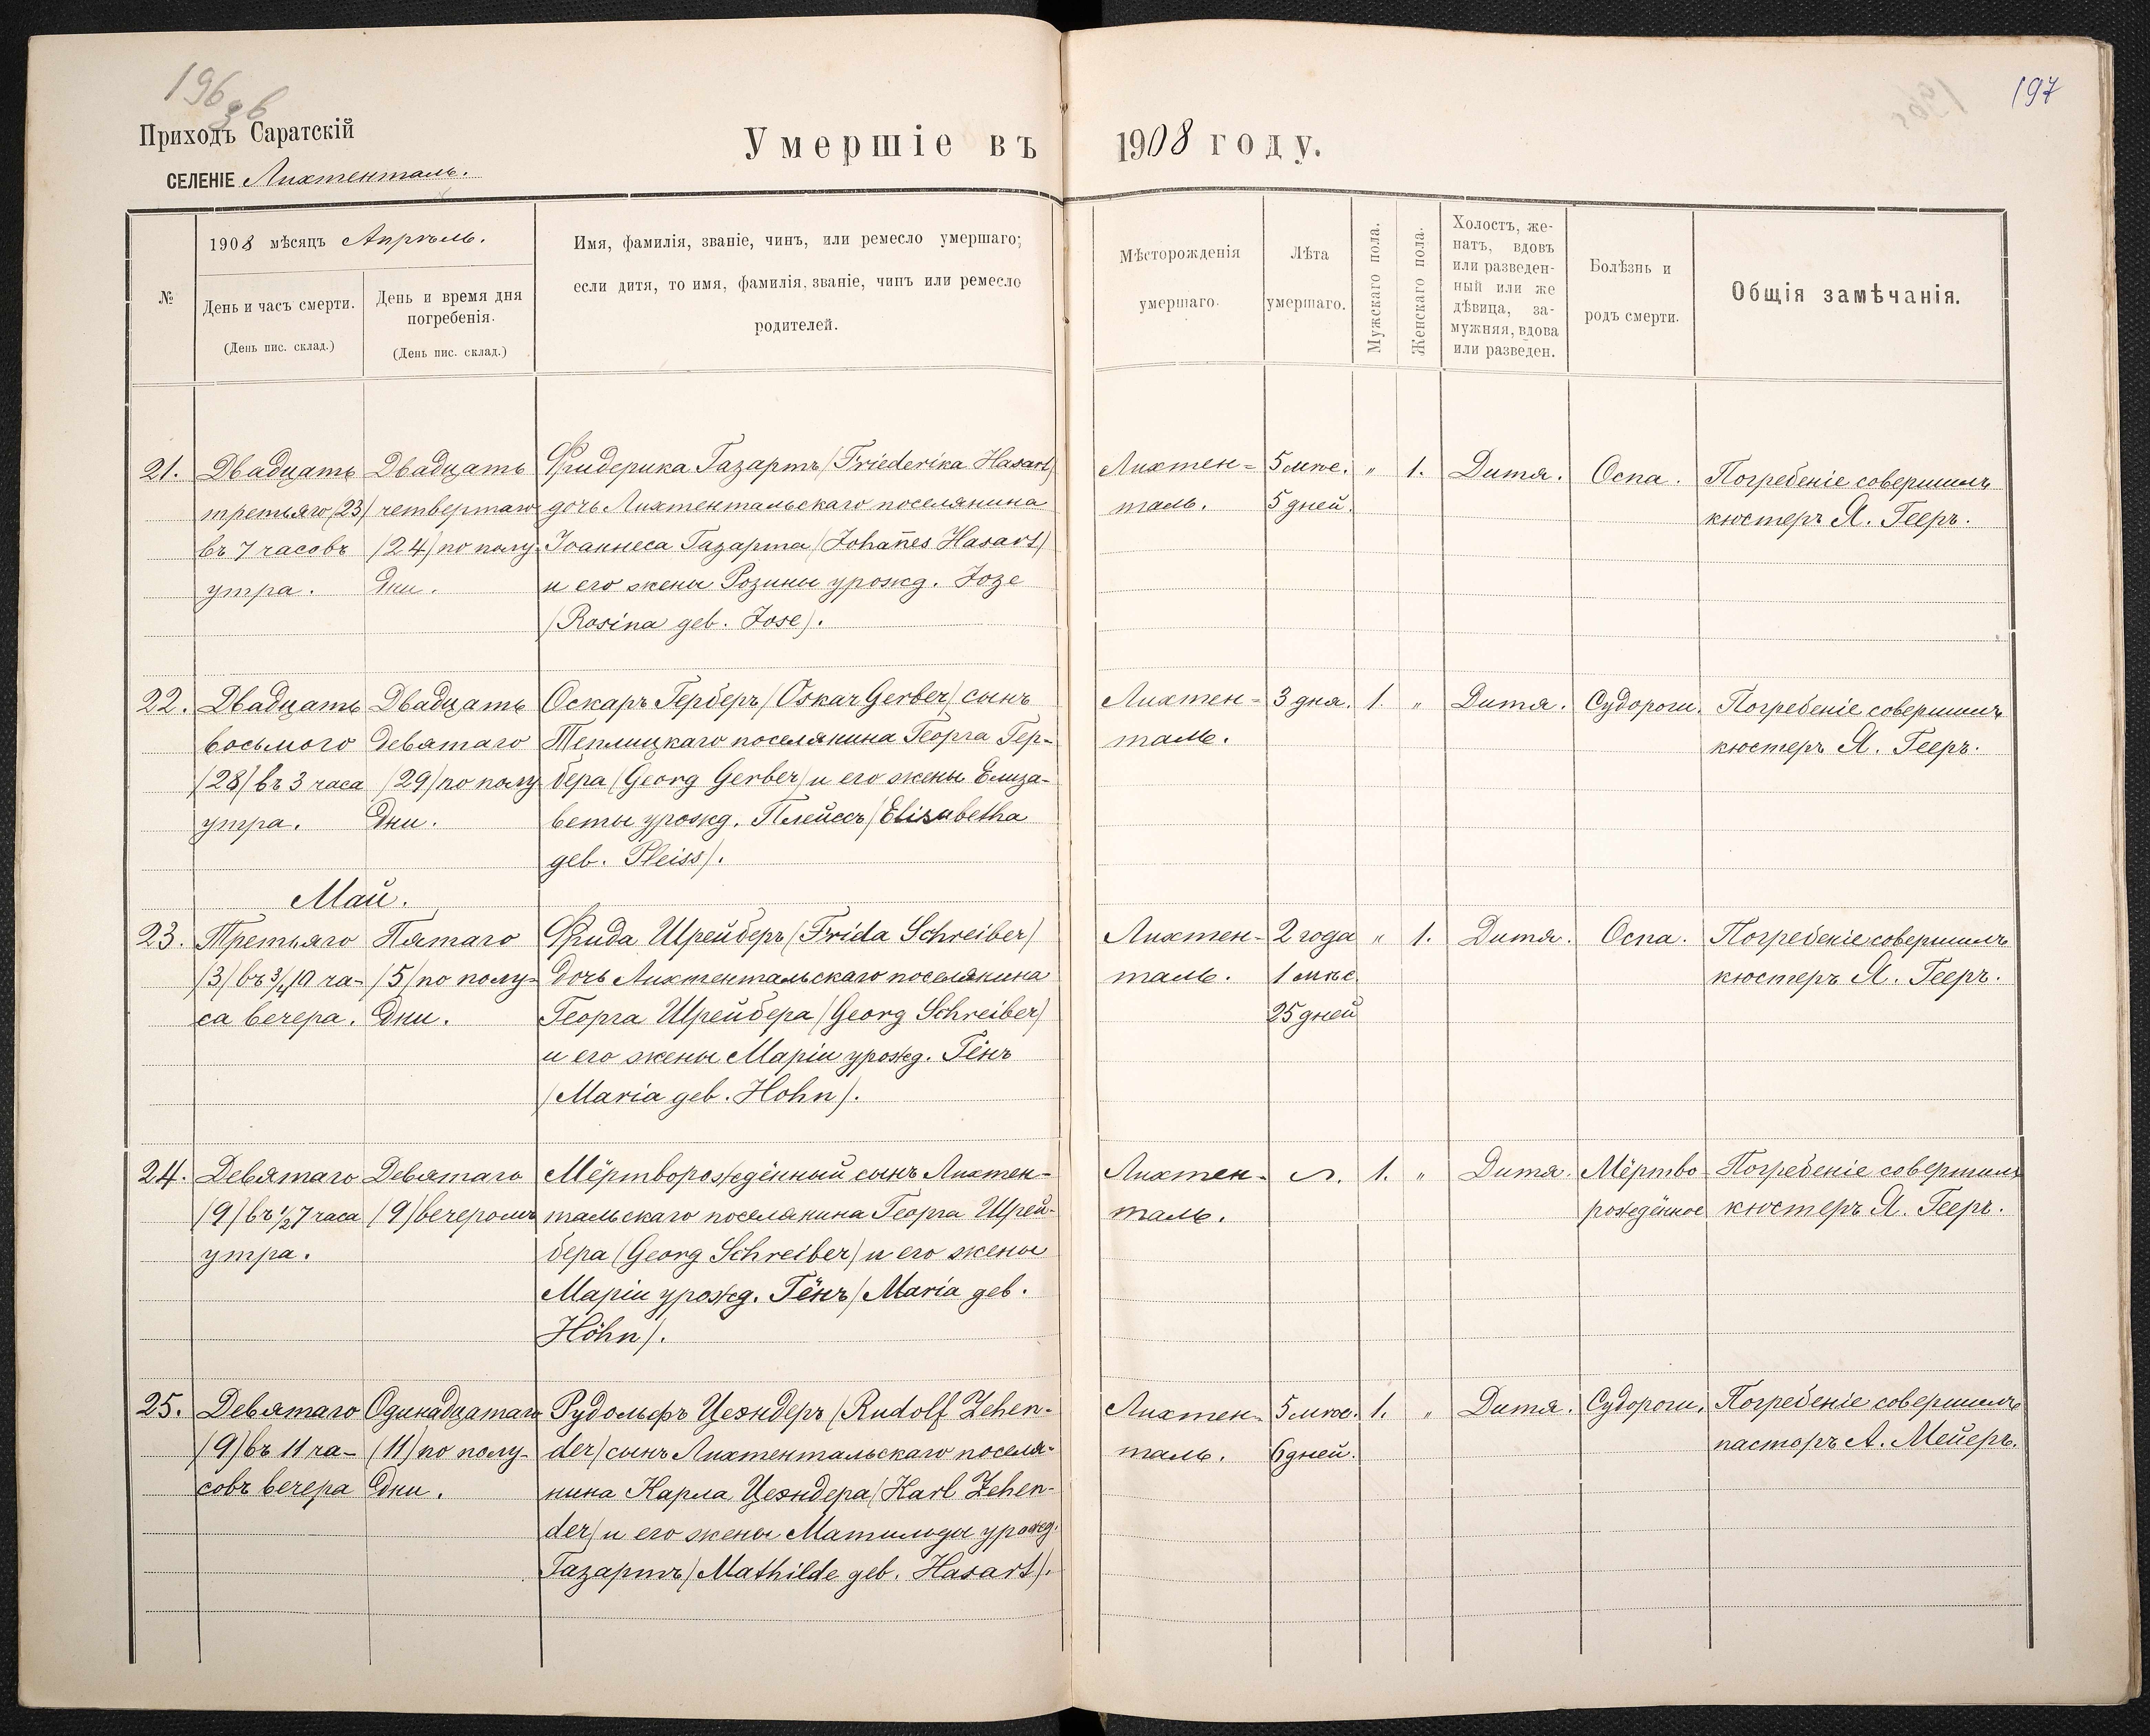 196
зв
197
Приходъ Саратскій
СЕЛЕНІЕ Лихтенталь.
Умершіе въ 1908 году.
№
1908 мѣсяцъ Апрѣль.
День и часъ смерти.
(День пис. склад.)
День и время дня
погребенія.
(День пис. склад.)
Имя, фамилія, званіе, чинъ, или ремесло умершаго;
если дитя, то имя, фамилія, званіе, чинъ или ремесло
родителей.
Мѣсторожденія
умершаго.
Лѣта
умершаго.
Мужскаго пола.
Женскаго пола.
Холостъ, же-
натъ, вдовъ
или разведен-
ный или же
дѣвица, за-
мужняя, вдова
или разведен.
Болѣзнь и
родъ смерти.
Общія замѣчанія.
21.
Двадцать
третьяго (23)
въ 7 часовъ
утра.
Двадцать
четвертаго
(24) по полу-
дни.
Фридерика Газартъ (Friederika Hasart)
дочь Лихтентальскаго поселянина
Іоаннеса Газарта (Johan̄es Hasart)
и его жены Розины урожд. Іозе
(Rosina geb. Jose).
Лихтен-
таль.
5 мѣс.
5 дней.
"
1.
Дитя.
Оспа.
Погребеніе совершилъ
кюстеръ Я. Гееръ.
22.
Двадцать
восьмого
(28) въ 3 часа
утра.
Двадцать
девятаго
(29) по полу-
дни.
Оскаръ Герберъ (Oskar Gerber) сынъ
Теплицкаго поселянина Георга Гер-
бера (Georg Gerber) и его жены Елиза-
веты урожд. Плейссъ (Elisabetha
geb. Pleiss).
Лихтен-
таль.
3 дня.
1.
"
Дитя.
Судороги.
Погребеніе совершилъ
кюстеръ Я. Гееръ.
Май.
23.
Третьяго
(3) въ 3/4 10 ча-
са вечера.
Пятаго
(5) по полу-
дни.
Фрида Шрейберъ (Frida Schreiber)
дочь Лихтентальскаго поселянина
Георга Шрейбера (Georg Schreiber)
и его жены Маріи урожд. Гёнъ
(Maria geb. Hohn).
Лихтен-
таль.
2 года
1 мѣс.
25 дней
"
1.
Дитя.
Оспа.
Погребеніе совершилъ
кюстеръ Я. Гееръ.
24.
Девятаго
(9) въ 1/2 7 часа
утра.
Девятаго
(9) вечеромъ
Мёртворождённый сынъ Лихтен-
тальскаго поселянина Георга Шрей-
бера (Georg Schreiber) и его жены
Маріи урожд. Гёнъ (Maria geb.
Höhn).
Лихтен-
таль.
1.
"
Дитя.
Мёртво-
рождённое
Погребеніе совершилъ
кюстеръ Я. Гееръ.
25.
Девятаго
(9) въ 11 ча-
совъ вечера
Одинадцатаго
(11) по полу-
дни.
Рудольфъ Цеэндеръ (Rudolf Zehen-
der) сынъ Лихтентальскаго поселя-
нина Карла Цеэндера (Karl Zehen-
der) и его жены Матильды урожд.
Газартъ (Mathilde geb. Hasart).
Лихтен-
таль.
5 мѣс.
6 дней.
1.
"
Дитя.
Судороги.
Погребеніе совершилъ
пасторъ А. Мейеръ.